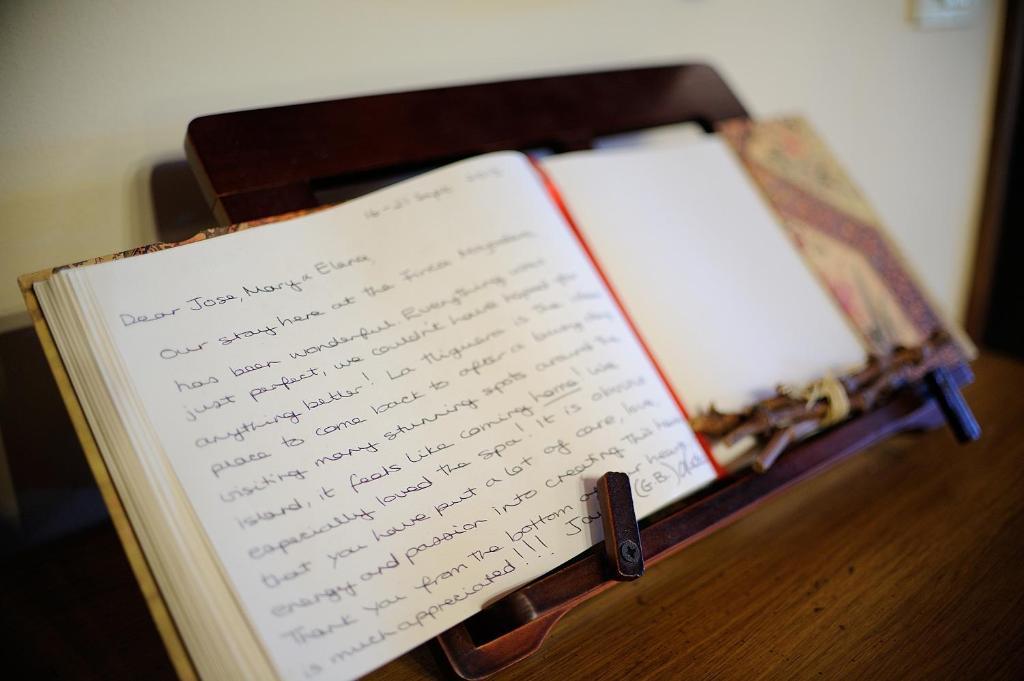 16-21 Sept
Dear Jose, Mary a Elena,
Our stay here at the Finca
has been wonderful. Everything was
just perfect, we couldn't have hoped for
anything better! La Higuera is the ideal
place to come back to after a
visiting many stunning spots around the
island, it feels like coming home! We
especially loved the spa! It is obvious
that you have put a lot of care, love,
energy and passion into creating this
Thank you from the bottom of our hearts
is much appreciated!!! (G.B.)